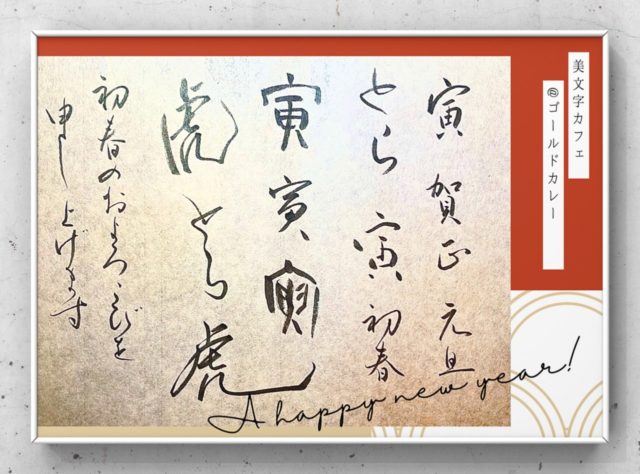 美文字カフェ
@ゴールドカレー
寅 賀正 元旦
とら 寅 初春
寅 寅 寅
虎 とら 虎
初春のおよろこびを
申し上げます
A happy new year!